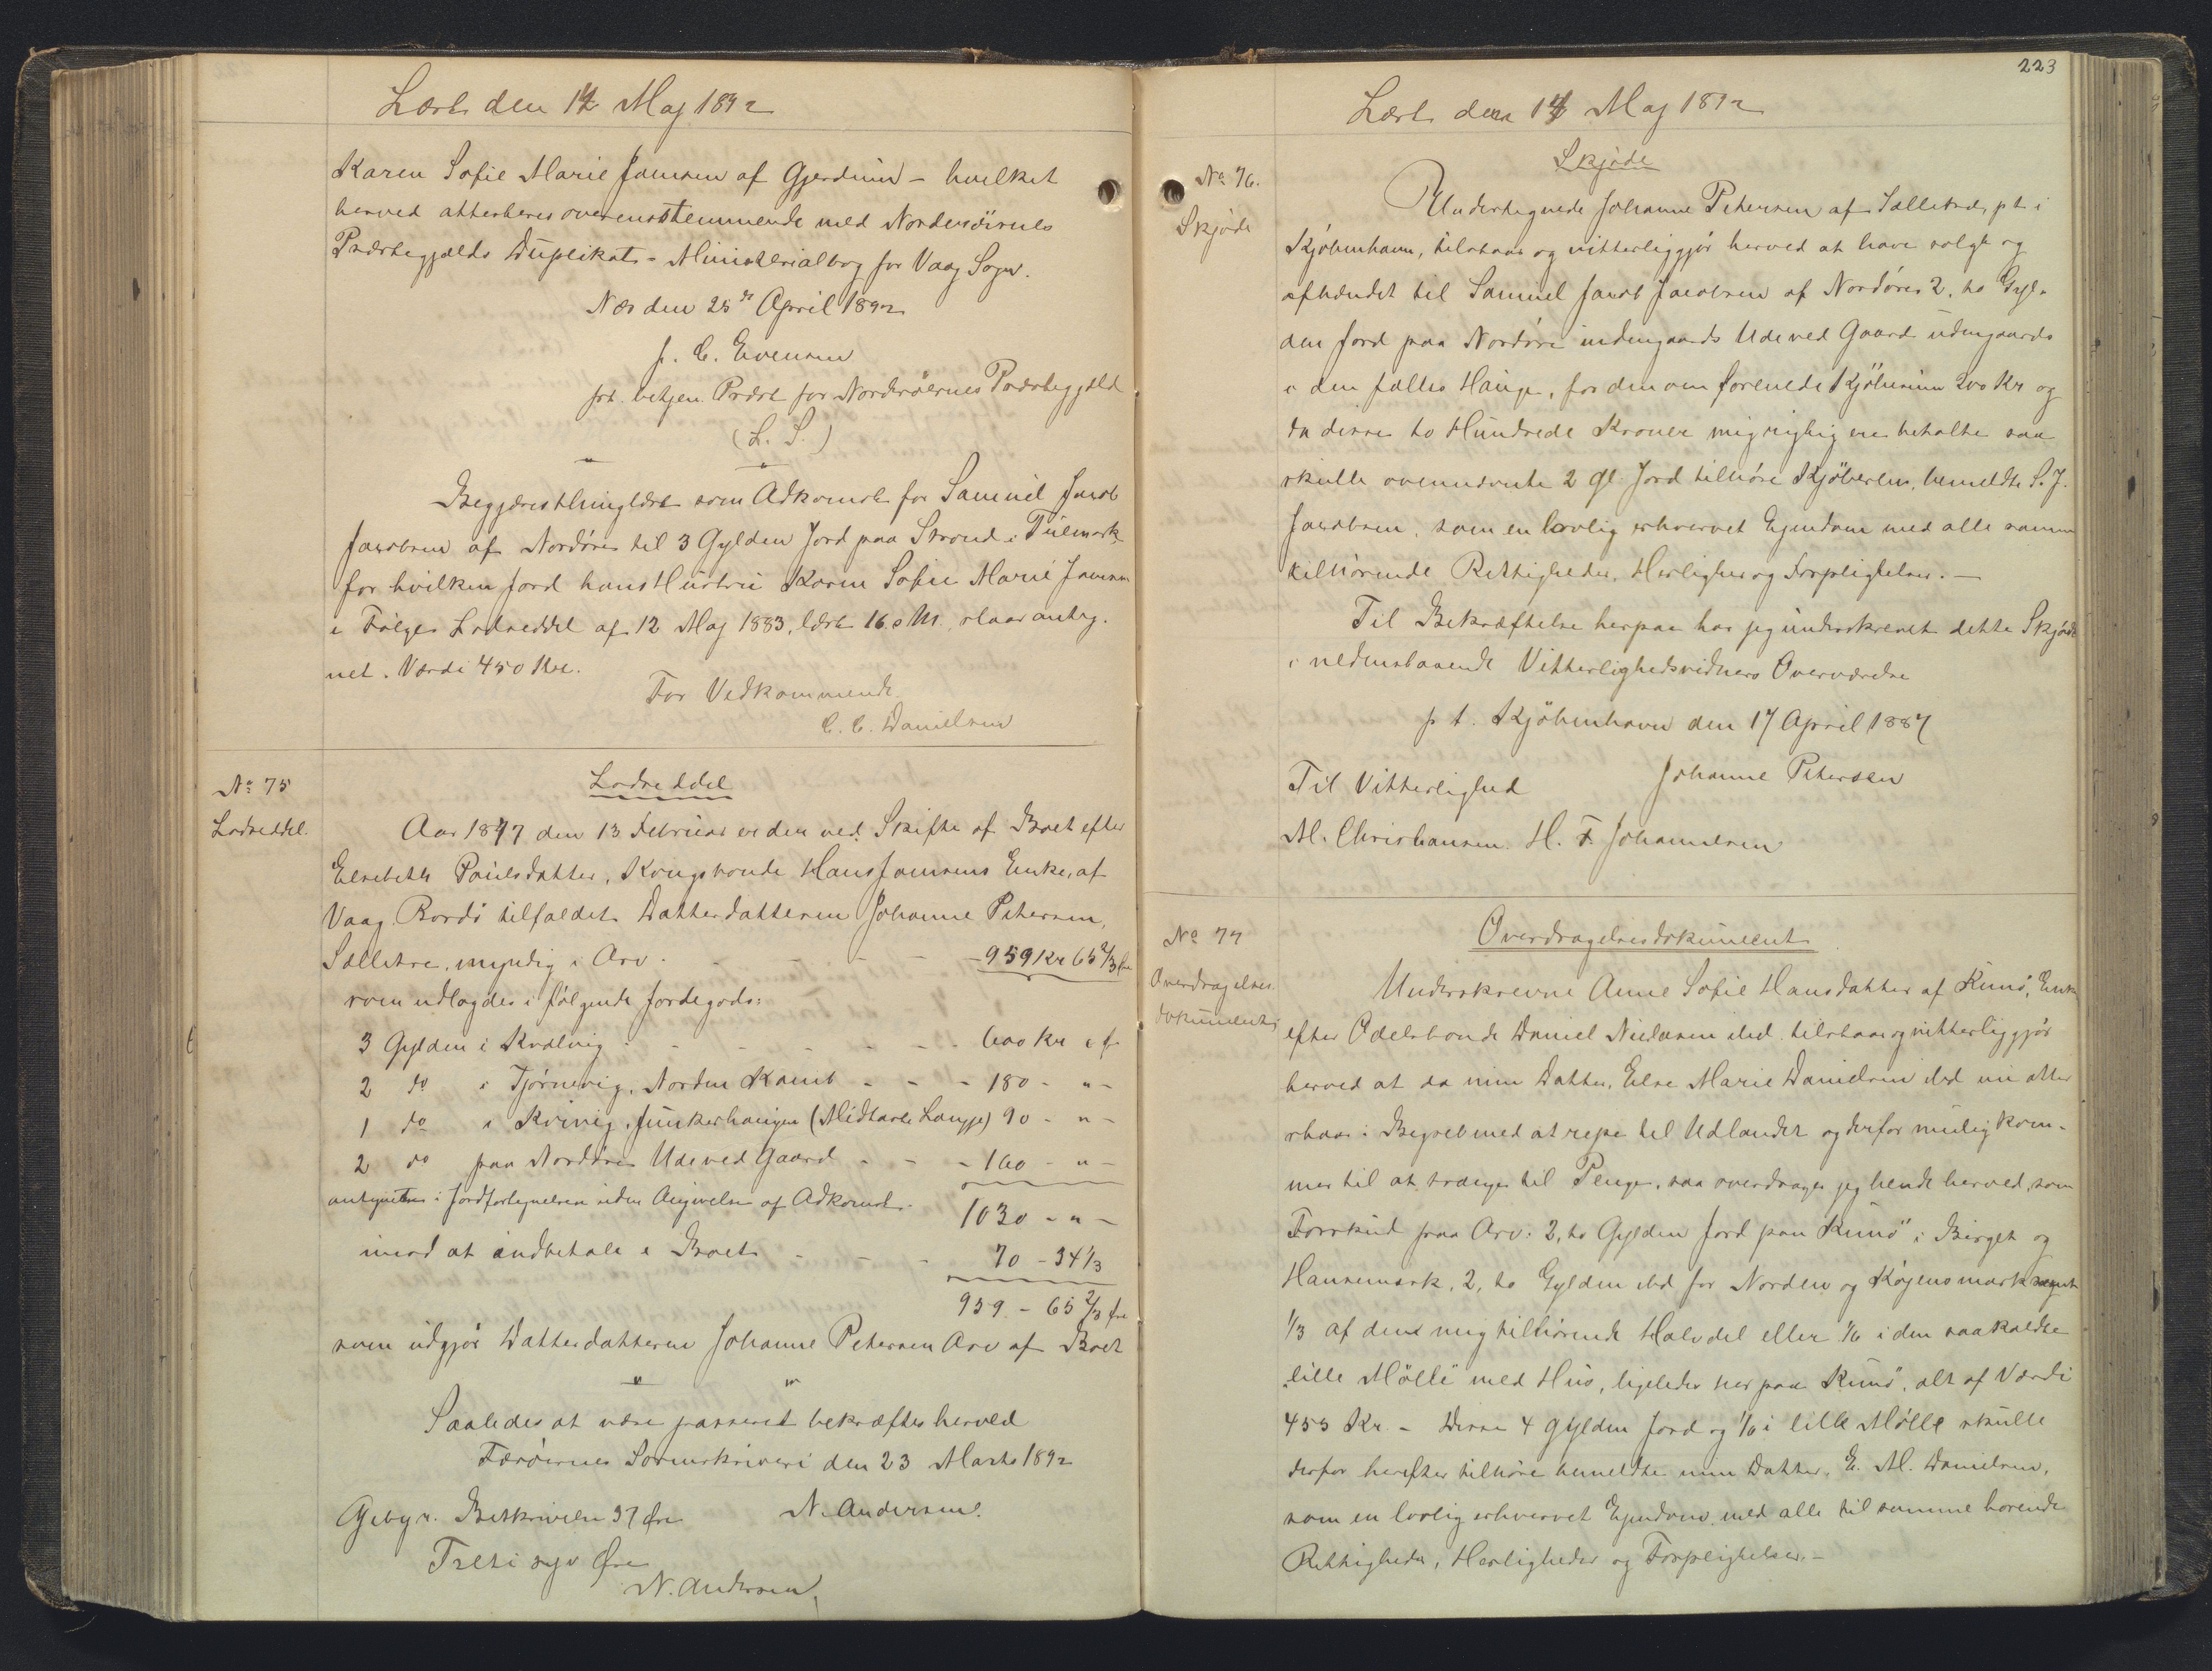 Læst den 14 Maj 1892
Karen Sofie Marie Jensen af Gjerdum - hvilket
herved attesteres overensstemmende med Norderöernes
Præstegjælds Duplikat-Ministerialbog for Vaag Sogn.
Næs den 25de April 1892
J. C. Evensen
frt. betjen. Præst for Norderöernes Præstegjæld
(L. S.)
Begjæres thinglæst som Adkomst for Samuel Jacob
Jacobsen af Nordöre til 3 Gylden Jord paa Strond i
for hvilken Jord hans Hustru Karen Sofie Marie
i Følge Lodseddel af 12 Maj 1883, læst 16 s. M., staar anteg-
net. Værdi 450 Kr.
For Vedkommende
C. C. Danielsen
No 75
Lodseddel.
Lodseddel
Aar 1877 den 13 Februar er der ved Skifte af Boet efter
Elsebeth Poulsdatter, Kongsbonde Hans Joensens Enke, af
Vaag Bordö tilfaldet Datterdatteren Johanne Petersen,
Selletræ, myndig i Arv - - - - 959 Kr 65 2/3 Øre
som udlagdes i følgende Jordegods:
3 Gylden i Kvalvig - - - - 600 Kr " Ø
2 do i Tjørnevig, Norden Kamb - - - 180 - " -
1 do i Kvivig, Junkerhaugen (Midtarli Laugje) 90 - " -
2 do paa Nordöre Ude ved Gaard - - - 160 - " -
antegnedes i Jordfortegnelsen uden Angivelse af Adkomst. 1030 - " -
imod at indbetale i Boet - - - 70 - 34 1/3
959 - 65 2/3 Øre
som udgjør Datterdatteren Johanne Petersen Arv af Boet
" "
Saaledes at være passeret bekræftes herved
Færøernes Sorenskriveri den 23 Marts 1892
Gebyr. Beskrivelse 37 Øre N. Andersen.
Treti syv Øre
N. Andersen.
223
Læst den 14 Maj 1892
No 76.
Skjøde
Skjøde
Undertegnede Johanne Petersen af Selletræ, p.t. i
Kjøbenhavn, tilstaar og vitterliggjør herved at have solgt og
afhændet til Samuel Jacob Jacobsen af Nordöre 2, to Gyl-
den Jord paa Nordöre indengaards Ude ved Gaard udengaards
i den fælles Hauge, for den om forenede Kjøbesum 200 Kr og
da disse to Hundrede Kroner mig rigtig ere betalte saa
skulle ovennævnte 2 Gl. Jord tilhøre Kjøberen, bemeldte S. J.
Jacobsen, som en lovlig erhvervet Ejendom med alle samme
tilhørende Rettigheder, Herligheder og Forpligtelser. -
Til Bekræftelse herpaa har jeg underskrevet dette Skjøde
i nedenstaaende Vitterlighedsvidners Overværelse
p.t. Kjøbenhavn den 17 April 1887
Til Vitterlighed Johanne Petersen
M. Christiansen. H. F. Johannesen
No 77
Overdragelses-
dokument
Overdragelsesdokument
Underskrevne Anne Sofie Hansdatter af Kunö, Enke
efter Odelsbonde Daniel Nielsen ibd. tilstaar og vitterliggjør
herved at da min Datter, Else Marie Danielsen ibd nu atter
staar i Begreb med at rejse til Udlandet og derfor mulig kom-
mer til at trænge til Penge, saa overdrager jeg hende herved, som
Forskud paa Arv: 2, to Gylden Jord paa Kunö i Birget og
Hansemark, 2, to Gylden ibd for Norden og Køjensmark samt
1/3 af den mig tilhørende Halvdel eller 1/6 i den saakaldte
"lille Mölle" med Hus, ligeledes her paa Kunö, alt af Værdi
453 Kr. - Disse 4 Gylden Jord og 1/6 i lille Mölle skulle
derfor herefter tilhøre bemeldte min Datter, E. M. Danielsen,
som en lovlig erhvervet Ejendom med alle til samme hørende
Rettigheder, Herligheder og Forpligtelser. -